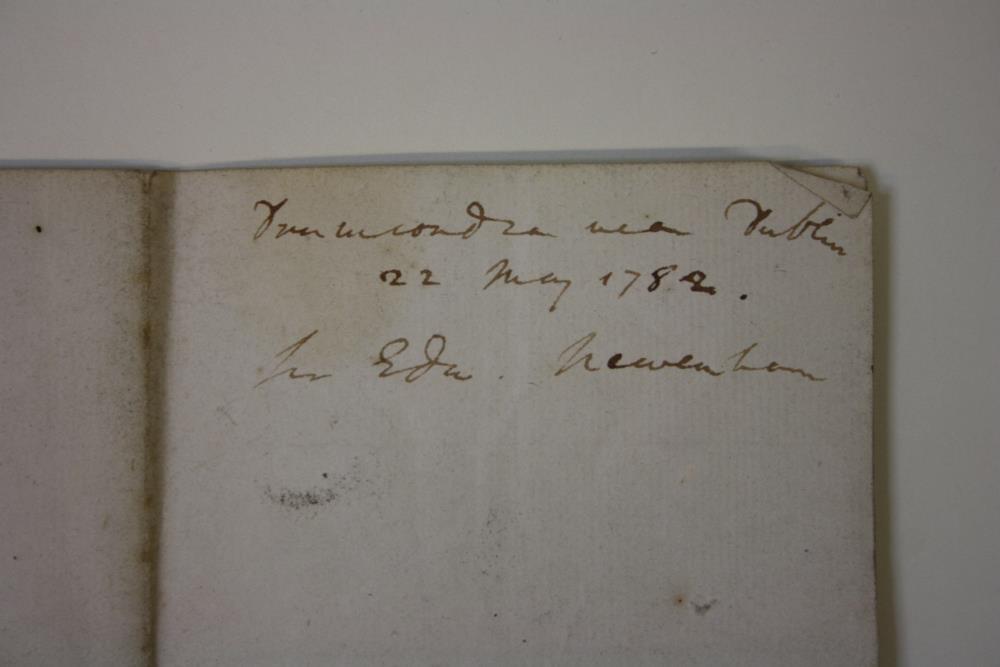 Drumcondra near Dublin
22 May 1782.
Sir Edw. Newenham